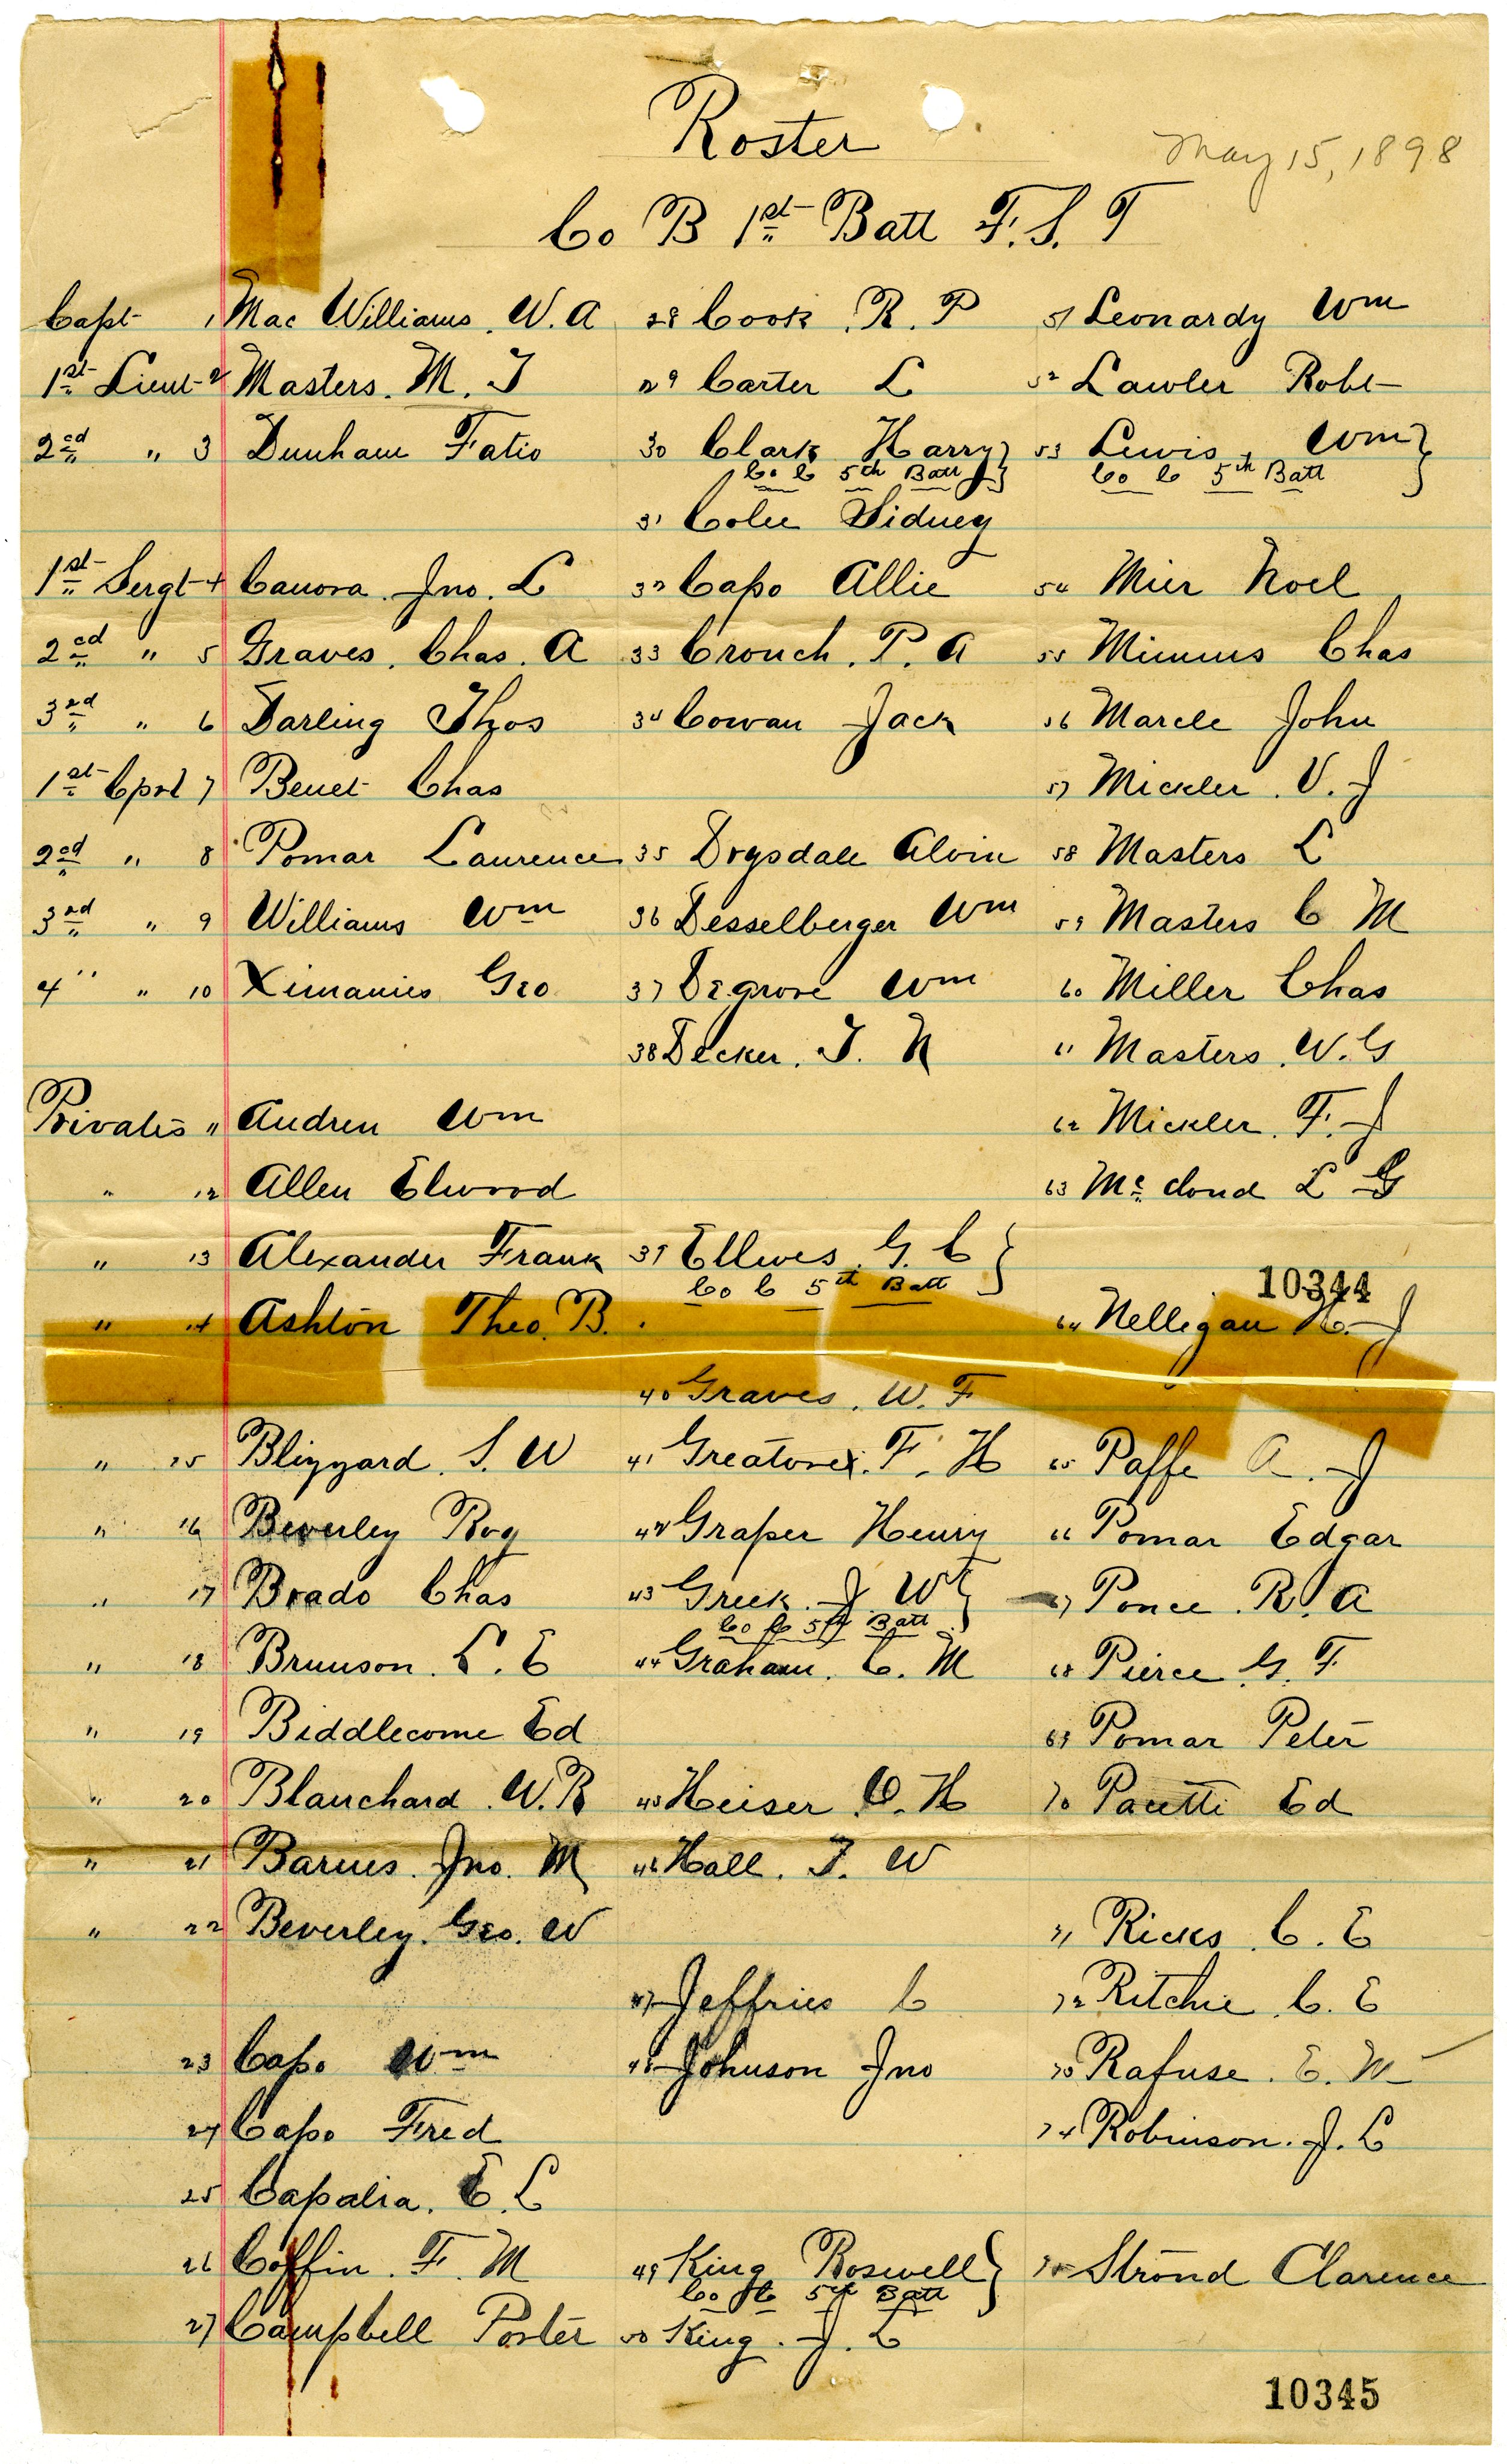 Roster
May 15, 1898
Co B 1st Batt F. S. T
Capt 1 Mac Williams. W. A
1st Lieut 2 Masters. M. J
2ed " 3 Dunham Fatio
1st Sergt 4 Canova. Jno. L
2ed " 5 Graves. Chas. A
3rd " 6 Darling Thos
1st Cprl 7 Benet Chas
2ed " 8 Pomar Laurence
3rd " 9 Williams Wm
4" " 10 Ximanies Geo
Privates 11 Andreu Wm
" 12 Allen Elwood
" 13 Alexander Frank
" 14 Ashton Theo. B.
" 15 Blizzard. S. W
" 16 Beverley Roy
" 17 Brado Chas
" 18 Brunson. L. E
" 19 Biddlecome Ed
" 20 Blanchard. W. R
" 21 Barnes. Jno. M
" 22 Beverley. Geo. W
23 Capo Wm
24 Capo Fred
25 Capalia. E. L
26 Coffin. F. M
27 Campbell Porter
28 Cook. R. P
29 Carter L
30 Clark Harry }
Co C 5th Batt
31 Colee Sidney
32 Capo Allie
33 Crouch. P. A
34 Cowan Jack
35 Drysdale Alvin
36 Desselberger Wm
37 Degrove Wm
38 Decker. J. N
39 Ellwes. G. C }
Co C 5th Batt
40 Graves. W. F
41 Greatorex. F. H
42 Graper Henry
43 Greek. J. W }
Co C 5th Batt
44 Graham. C. M
45 Heiser O. H
46 Hall. J. W
47 Jeffries C
48 Johnson Jno
49 King Roswell }
Co C 5th Batt
50 King. J. L
51 Leonardy Wm
52 Lawler Robt
53 Lewis, Wm }
Co C 5th Batt
54 Mier Noel
55 Mimms Chas
56 Marcle John
57 Mickler. V. J
58 Masters L
59 Masters C M
60 Miller Chas
61 Masters. W. G
62 Mickler. F. J
63 Mc cloud L G
10344
64 Nelligan H. J
65 Paffe A. J
66 Pomar Edgar
67 Ponce. R. A
68 Pierce. G. F
69 Pomar Peter
70 Pacetti Ed
71 Ricks. C. E
72 Ritchie. C. E
73 Rafuse. E. M
74 Robinson. J. C
75 Strond Clarence
10345